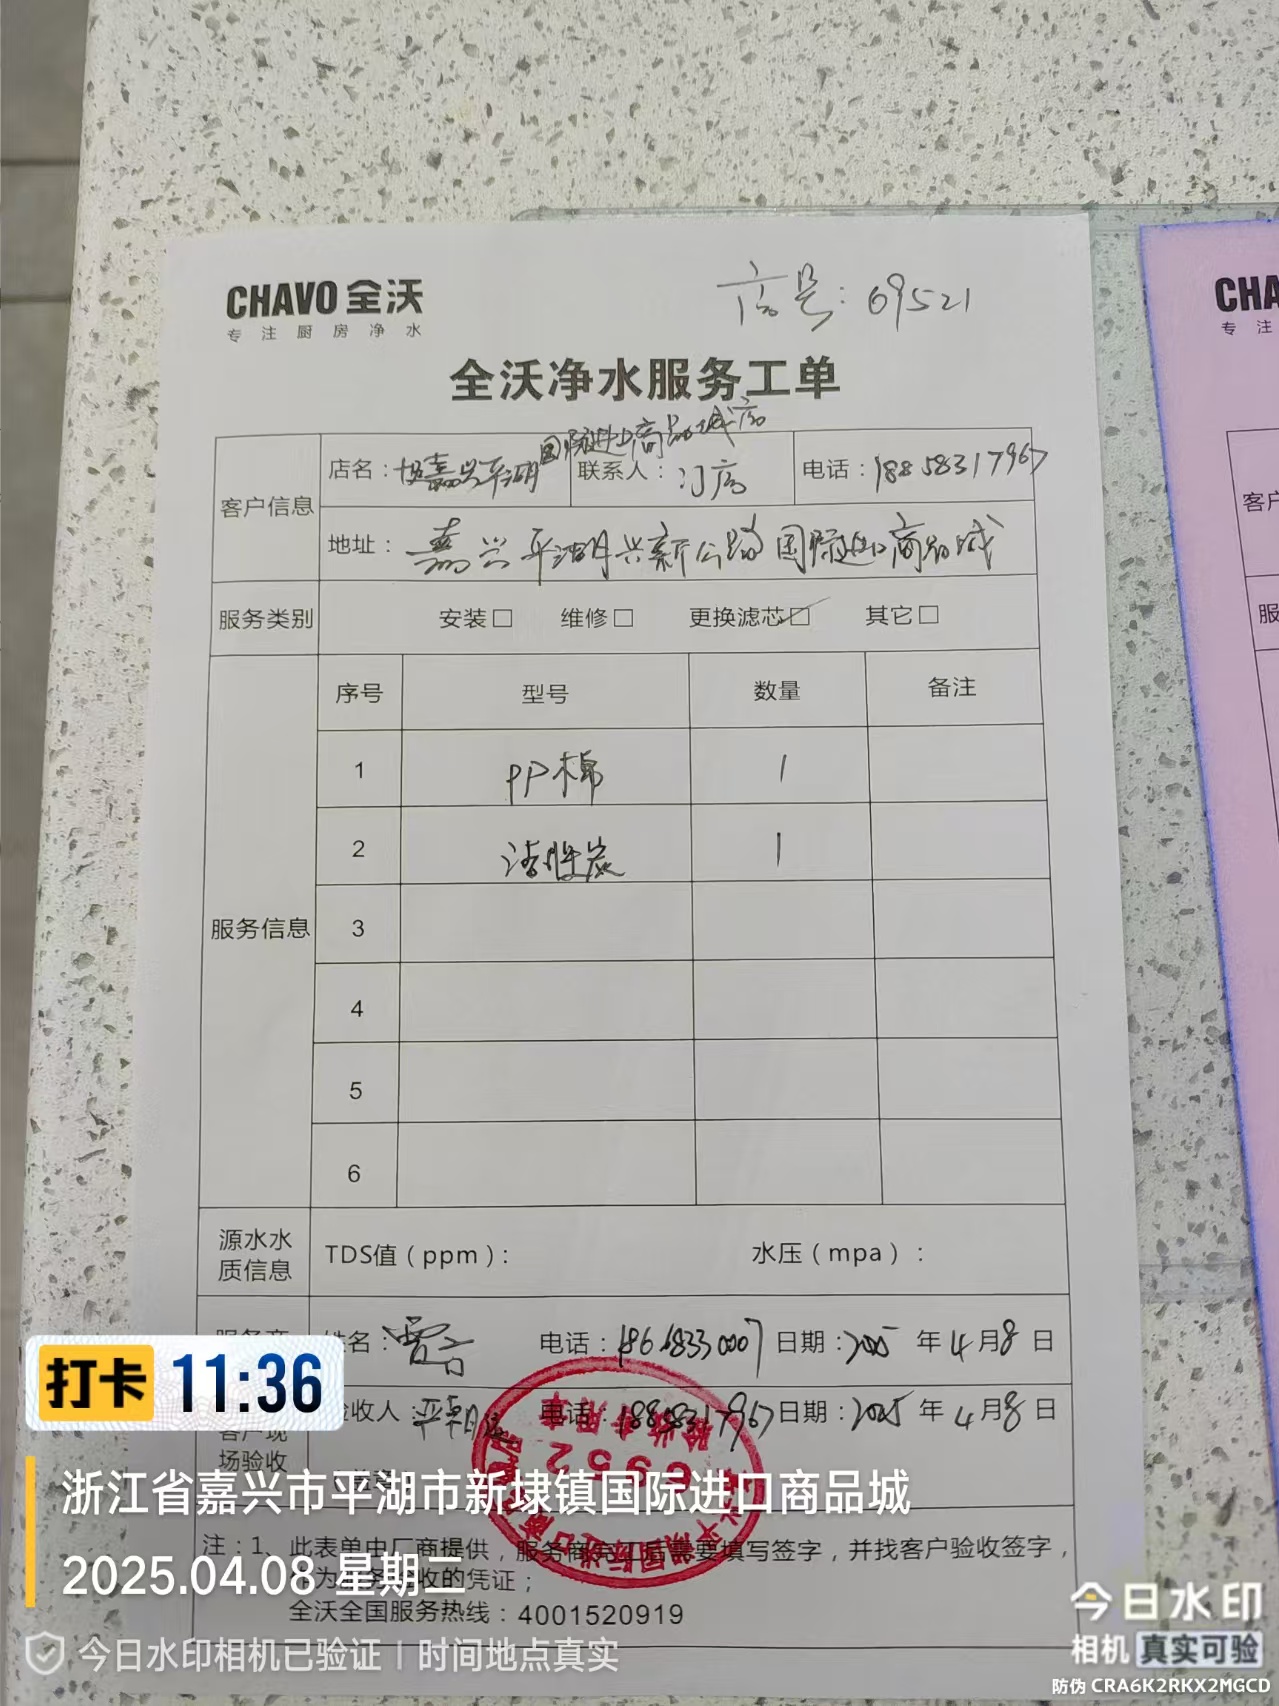 CHAVO 全沃
专注厨房净水
店号：69521
全沃净水服务工单
客户信息
店名：嘉兴平湖国际进口商品城店
联系人：门店
电话：18858317967
地址：嘉兴平湖兴新公路国际进口商品城
服务类别 安装□ 维修□ 更换滤芯☑ 其它□
服务信息
序号 型号 数量 备注
1 PP棉 1
2 活性炭 1
3
4
5
6
源水水质信息 TDS值（ppm）： 水压（mpa）：
姓名： 电话：18668330007 日期：2025年4月8日
客户现场验收
验收人： 电话：18858317967 日期：2025年4月8日
注：1、此表单由厂商提供，服务商完工后需要填写签字，并找客户验收签字，
作为服务验收的凭证；
全沃全国服务热线：4001520919
打卡 11:36
浙江省嘉兴市平湖市新埭镇国际进口商品城
2025.04.08 星期二
今日水印相机已验证 | 时间地点真实
今日水印
相机 真实可验
防伪 CRA6K2RKX2MGCD
CHA
专注
客户
服